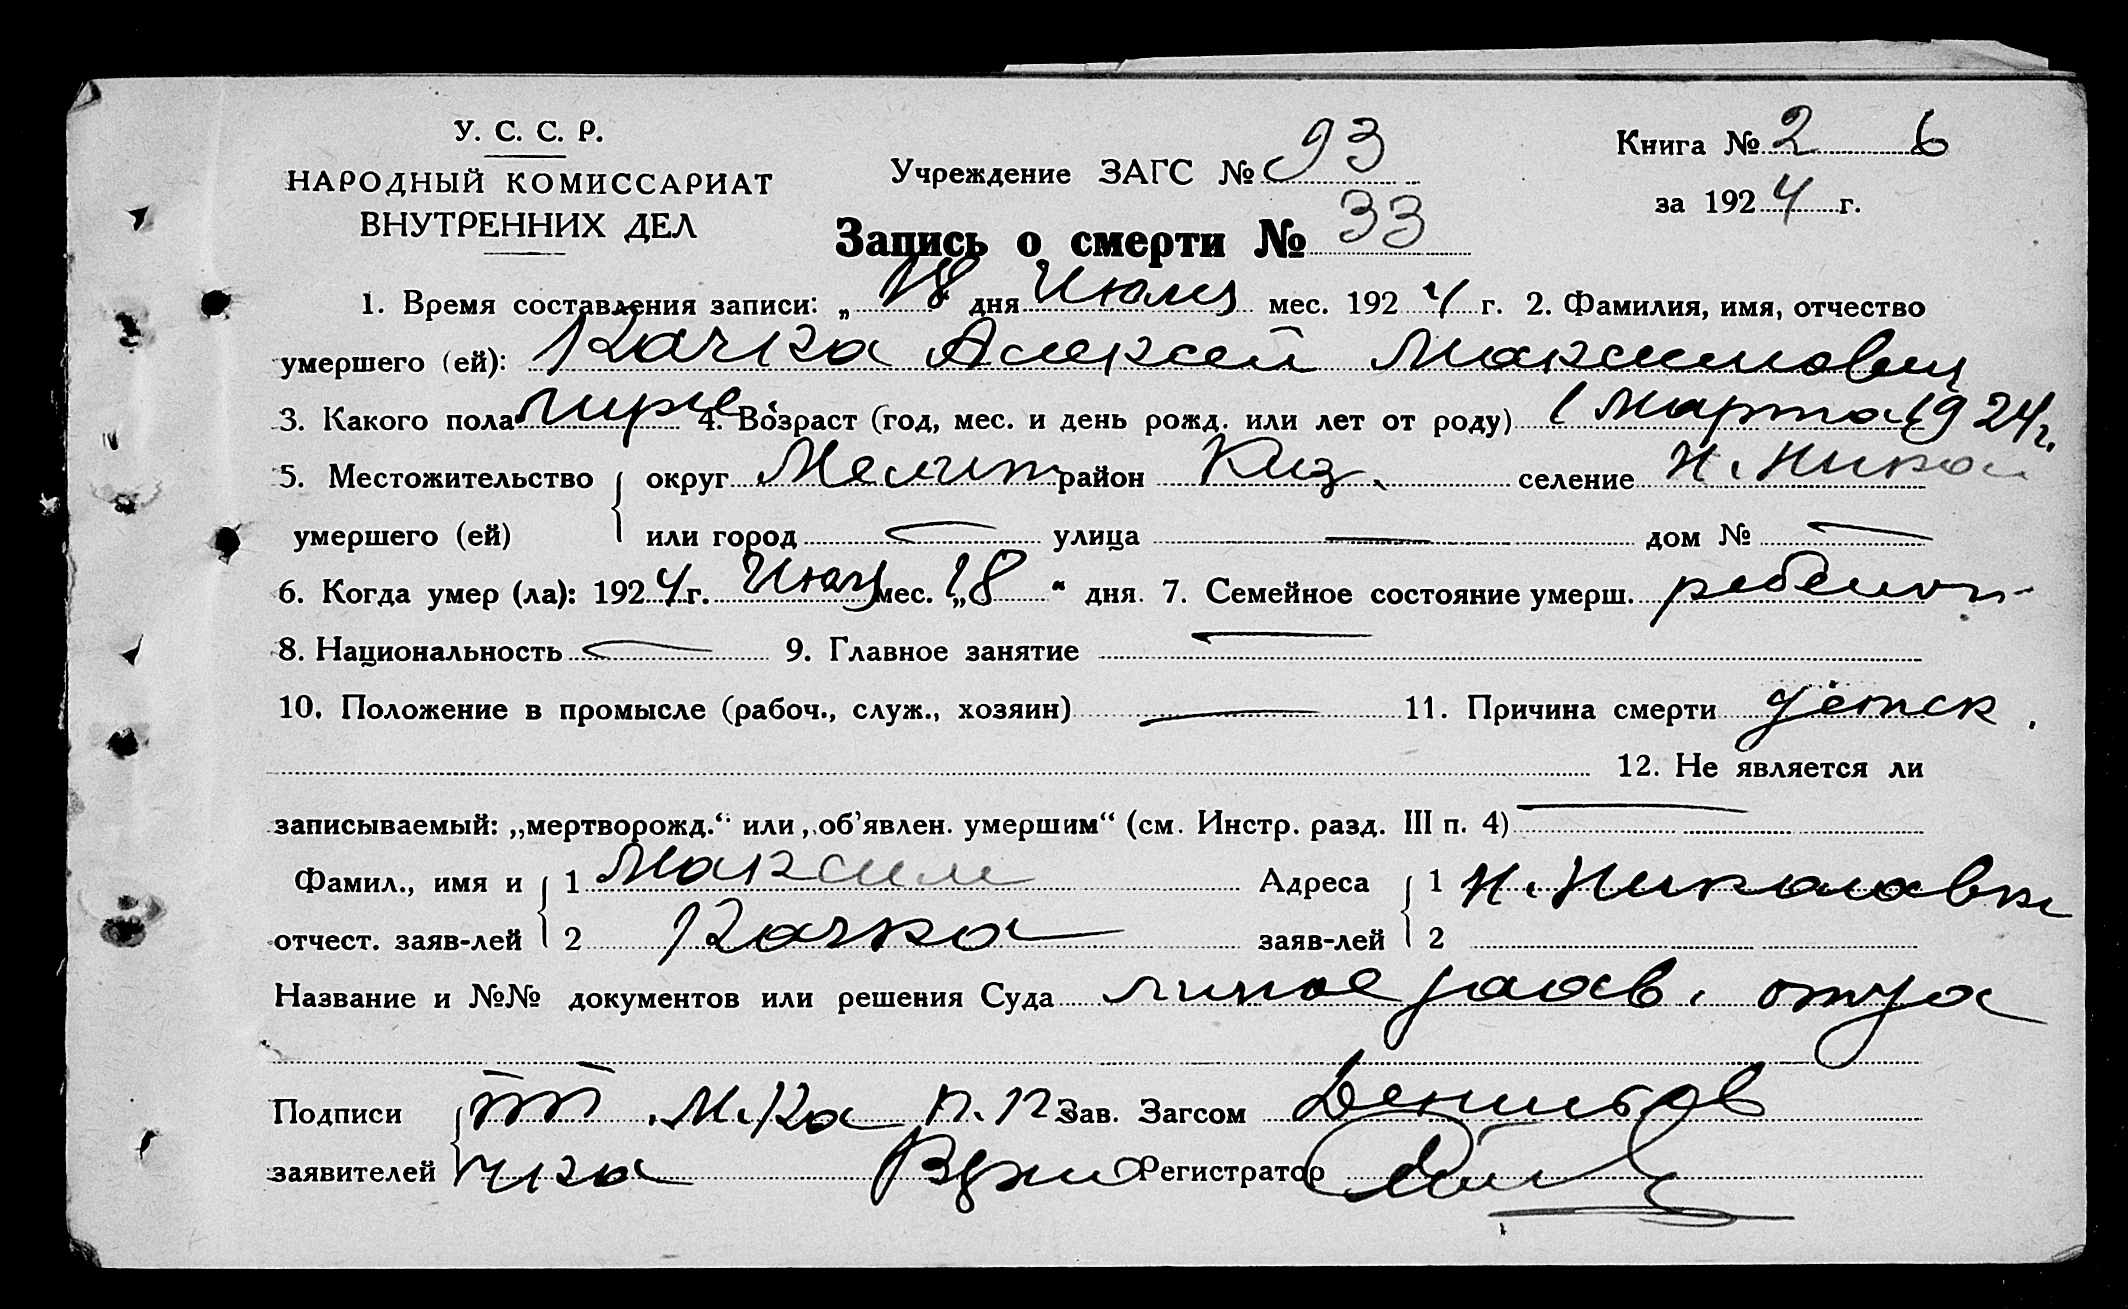 У. С. С. Р.
НАРОДНЫЙ КОМИССАРИАТ
ВНУТРЕННИХ ДЕЛ
Учреждение ЗАГС № 93
Книга № 2 6
за 1924 г.
Запись о смерти № 33
1. Время составления записи: „18 дня Июля мес. 1924 г. 2. Фамилия, имя, отчество
умершего (ей): Качка Алексей Максимович
3. Какого пола муж. 4. Возраст (год, мес. и день рожд. или лет от роду) 1 Марта 1924 г.
5. Местожительство округ Мелит район Киз. селение Н. Никол
умершего (ей) или город — улица — дом № —
6. Когда умер (ла): 1924 г. Июля мес. „18 “ дня. 7. Семейное состояние умерш. ребенок
8. Национальность — 9. Главное занятие —
10. Положение в промысле (рабоч., служ., хозяин) — 11. Причина смерти детск.
12. Не является ли
записываемый: „мертворожд.“ или „об'явлен. умершим“ (см. Инстр. разд. III п. 4) —
Фамил., имя и 1 Максим Адреса 1 Н. Николаевк
отчест. заяв-лей 2 Качка заяв-лей 2
Название и №№ документов или решения Суда личное заяв. отца
Подписи М. Ка Зав. Загсом
заявителей чка Регистратор